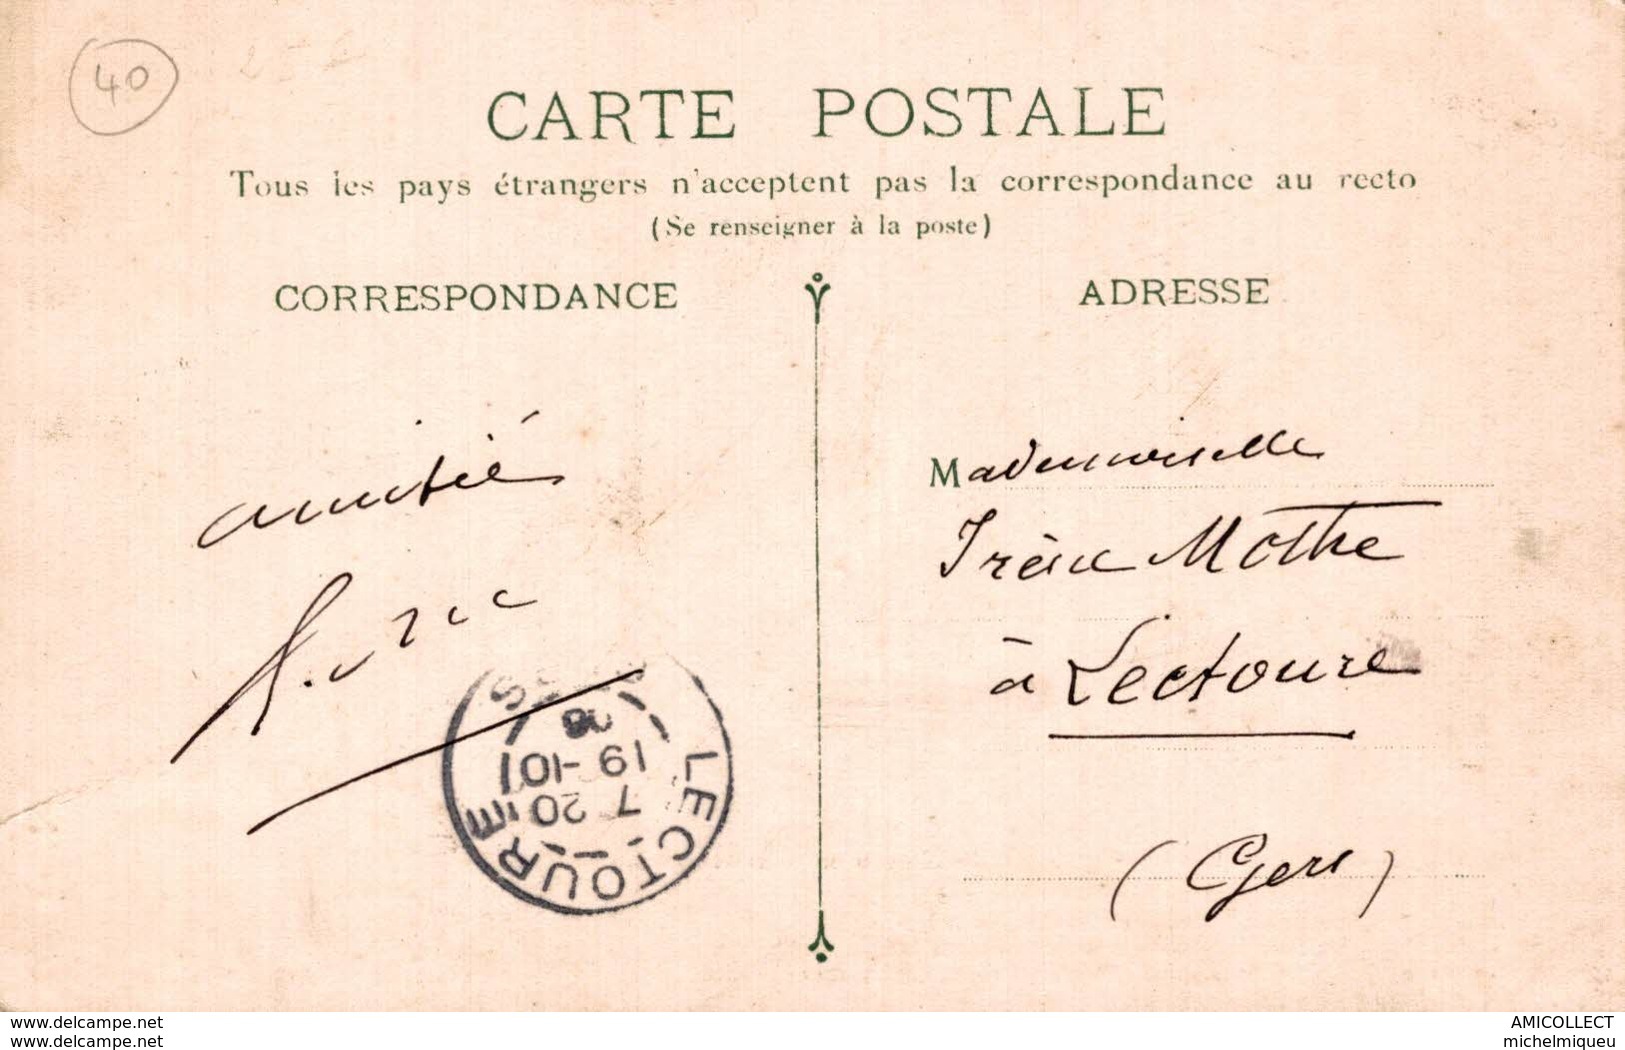 40
CARTE POSTALE
Tous les pays étrangers n'acceptent pas la correspondance au recto
(Se renseigner à la poste)
CORRESPONDANCE
ADRESSE
amitié
Mademoiselle
Irène Mothe
à Lectoure
(Gers)
LECTOURE
7 20
19-10
www.delcampe.net
www.delcampe.net
AMICOLLECT
michelmiqueu